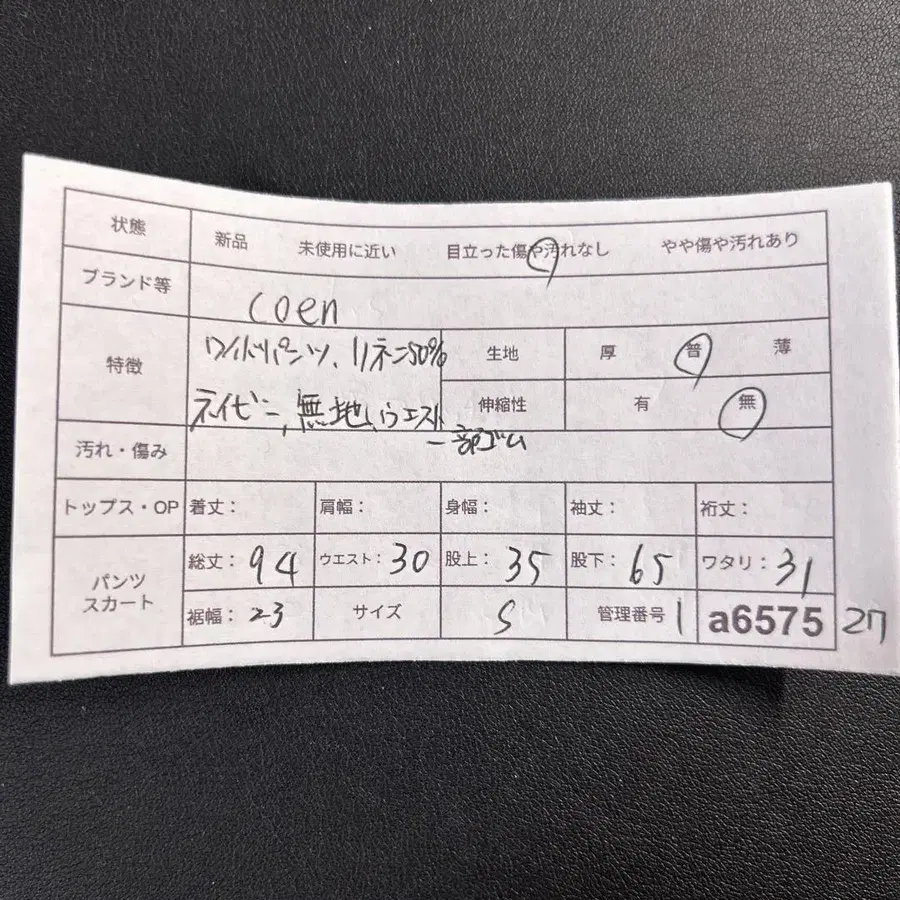 状態 新品 未使用に近い 目立った傷や汚れなし やや傷や汚れあり
ブランド等 coen
特徴 ワイドパンツ、リネン50% 生地 厚 普 薄
ネイビー、無地、ウエスト一部ゴム 伸縮性 有 無
汚れ・傷み
トップス・OP 着丈: 肩幅: 身幅: 袖丈: 裄丈:
パンツ スカート 総丈: 94 ウエスト: 30 股上: 35 股下: 65 ワタリ: 31
裾幅: 23 サイズ S 管理番号 1 a6575 27